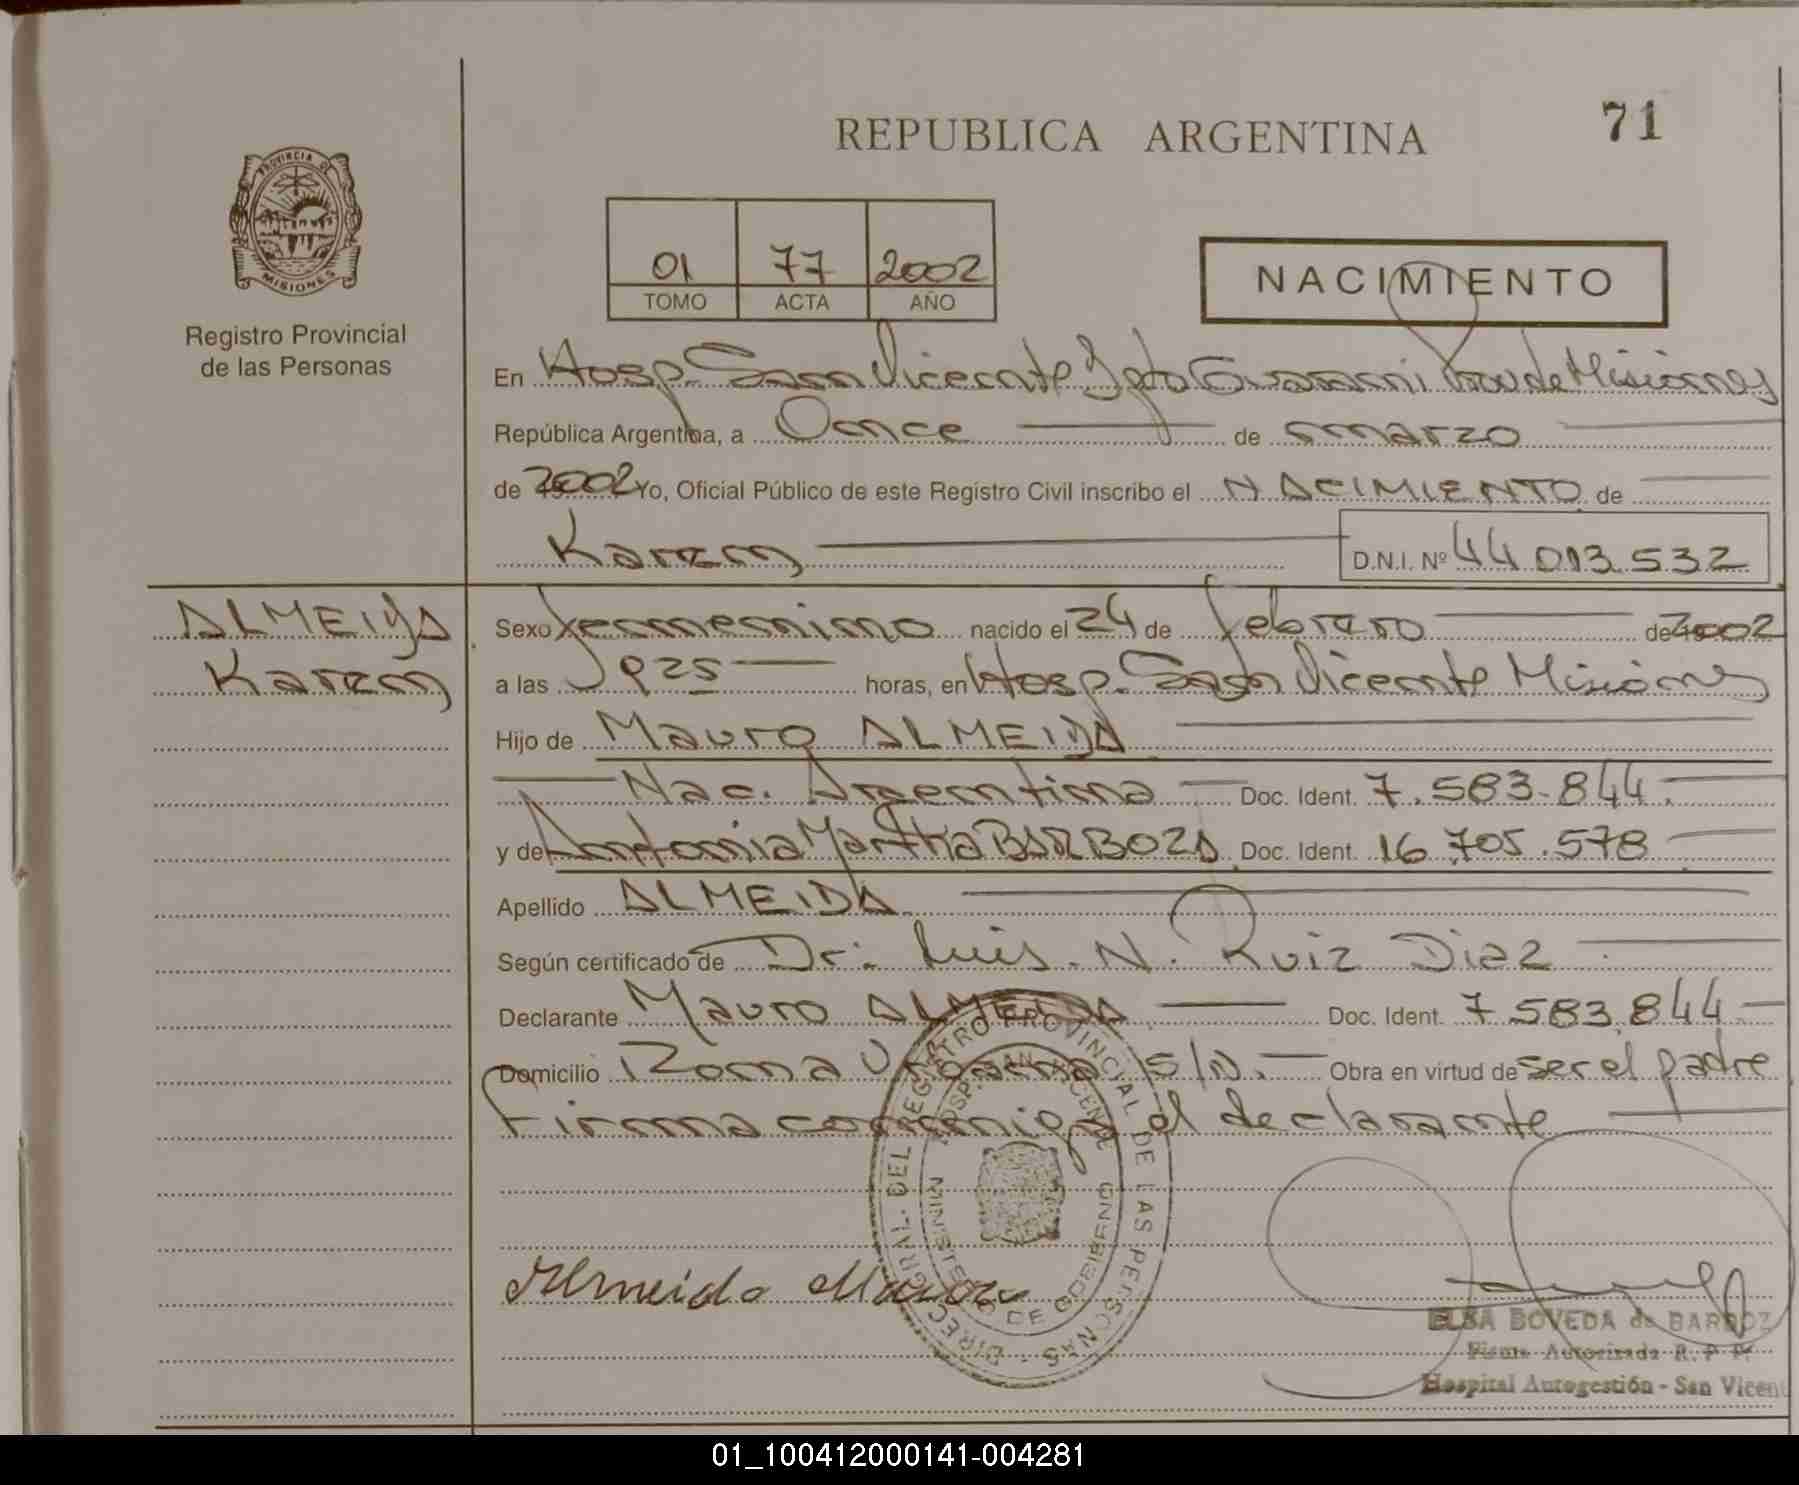 71
REPUBLICA ARGENTINA
PROVINCIA DE
MISIONES
Registro Provincial
de las Personas
01 77 2002
TOMO ACTA AÑO
NACIMIENTO
En Hosp. San Vicente Dpto Guarani Prov de Misiones
República Argentina, a Once de marzo
de 2002 Yo, Oficial Público de este Registro Civil inscribo el NACIMIENTO de
Karen D.N.I. Nº 44.013.532
ALMEIDA
Karen
Sexo femenino nacido el 24 de febrero de 2002
a las 925 horas, en Hosp. San Vicente Misiones
Hijo de Mauro ALMEIDA
Nac. Argentina Doc. Ident. 7.583.844.
y de Antonia Martha BARBOZA Doc. Ident. 16.705.578
Apellido ALMEIDA
Según certificado de Dr. Luis. N. Ruiz Diaz
Declarante Mauro ALMEIDA Doc. Ident. 7.583.844
Domicilio Zona Urbana S/N. Obra en virtud de ser el padre
Firma conmigo el declarante
DIREC. GRAL. DEL REGISTRO PROVINCIAL DE LAS PERSONAS
HOSP. SAN VICENTE
MINISTERIO DE GOBIERNO
Almeida Mauro
ELSA BOVEDA de BARROZ
Firma Autorizada R. P. P.
Hospital Autogestión - San Vicent
01_100412000141-004281